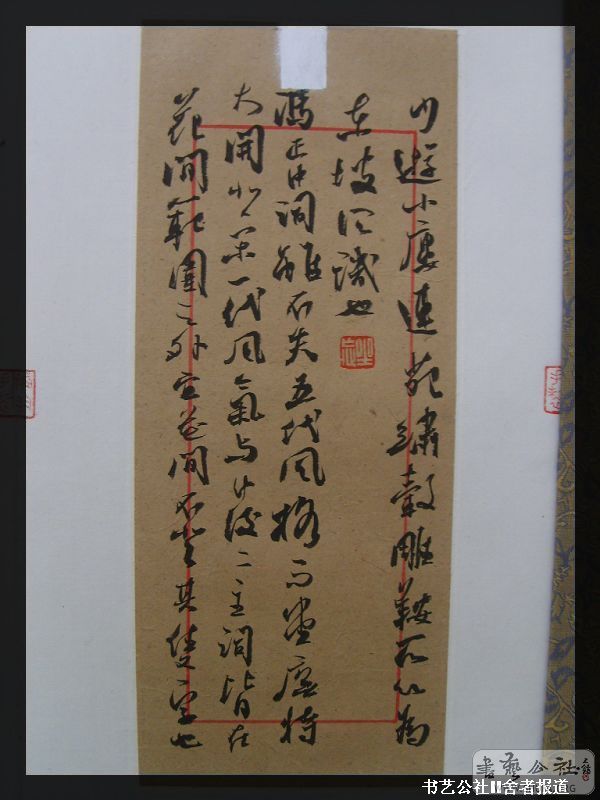 少遊小廔連苑繡轂雕鞍所以為
東坡所譏也
馮正中詞雖不失五代風格而堂廡特
大開北宋一代風氣與中後二主詞皆在
花間範圍之外宜花間不登其隻字也
書藝公社
书艺公社II舍者报道